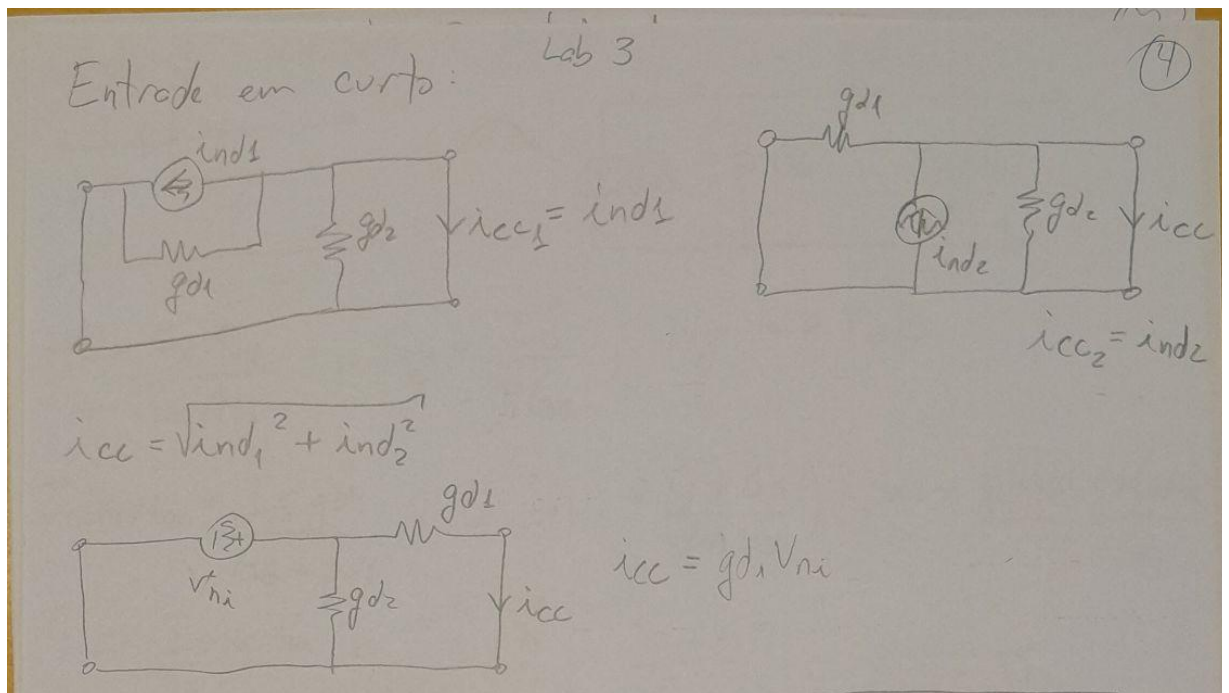 Lab 3
4
Entrada em curto:
ind1
gd1
gd2
icc1 = ind1
gd1
ind2
gd2
icc
icc2 = ind2
icc = √ind1² + ind2²
gd1
+
Vni
gd2
icc
icc = gd1 Vni